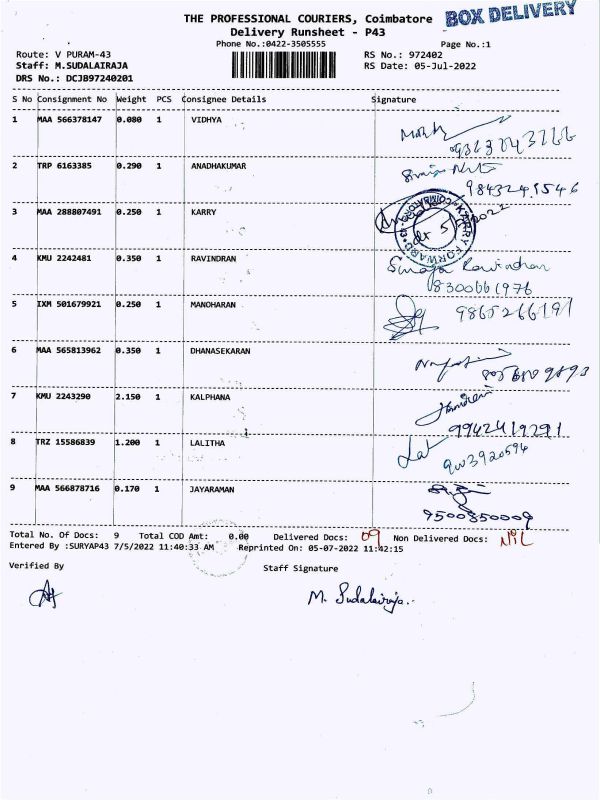 THE PROFESSIONAL COURIERS, Coimbatore BOX DELIVERY
Delivery Runsheet - P43
Phone No.:0422-3505555 Page No.:1
Route: V PURAM-43 RS No.: 972402
Staff: M.SUDALAIRAJA RS Date: 05-Jul-2022
DRS No.: DCJB97240201
S No Consignment No Weight PCS Consignee Details Signature
1 MAA 566378147 0.080 1 VIDHYA
2 TRP 6163385 0.290 1 ANADHAKUMAR
9843241546
3 MAA 288807491 0.250 1 KARRY
4 KMU 2242481 0.350 1 RAVINDRAN
Suraja Ravindran
8300661976
5 IXM 501679921 0.250 1 MANOHARAN
9865266191
6 MAA 565813962 0.350 1 DHANASEKARAN
7 KMU 2243290 2.150 1 KALPHANA
9942419291
8 TRZ 15586839 1.200 1 LALITHA
Lat
9003920594
9 MAA 566878716 0.170 1 JAYARAMAN
9500350009
Total No. Of Docs: 9 Total COD Amt: 0.00 Delivered Docs: 09 Non Delivered Docs: NiL
Entered By :SURYAP43 7/5/2022 11:40:33 AM Reprinted On: 05-07-2022 11:42:15
Verified By Staff Signature
M. Sudalairaja.